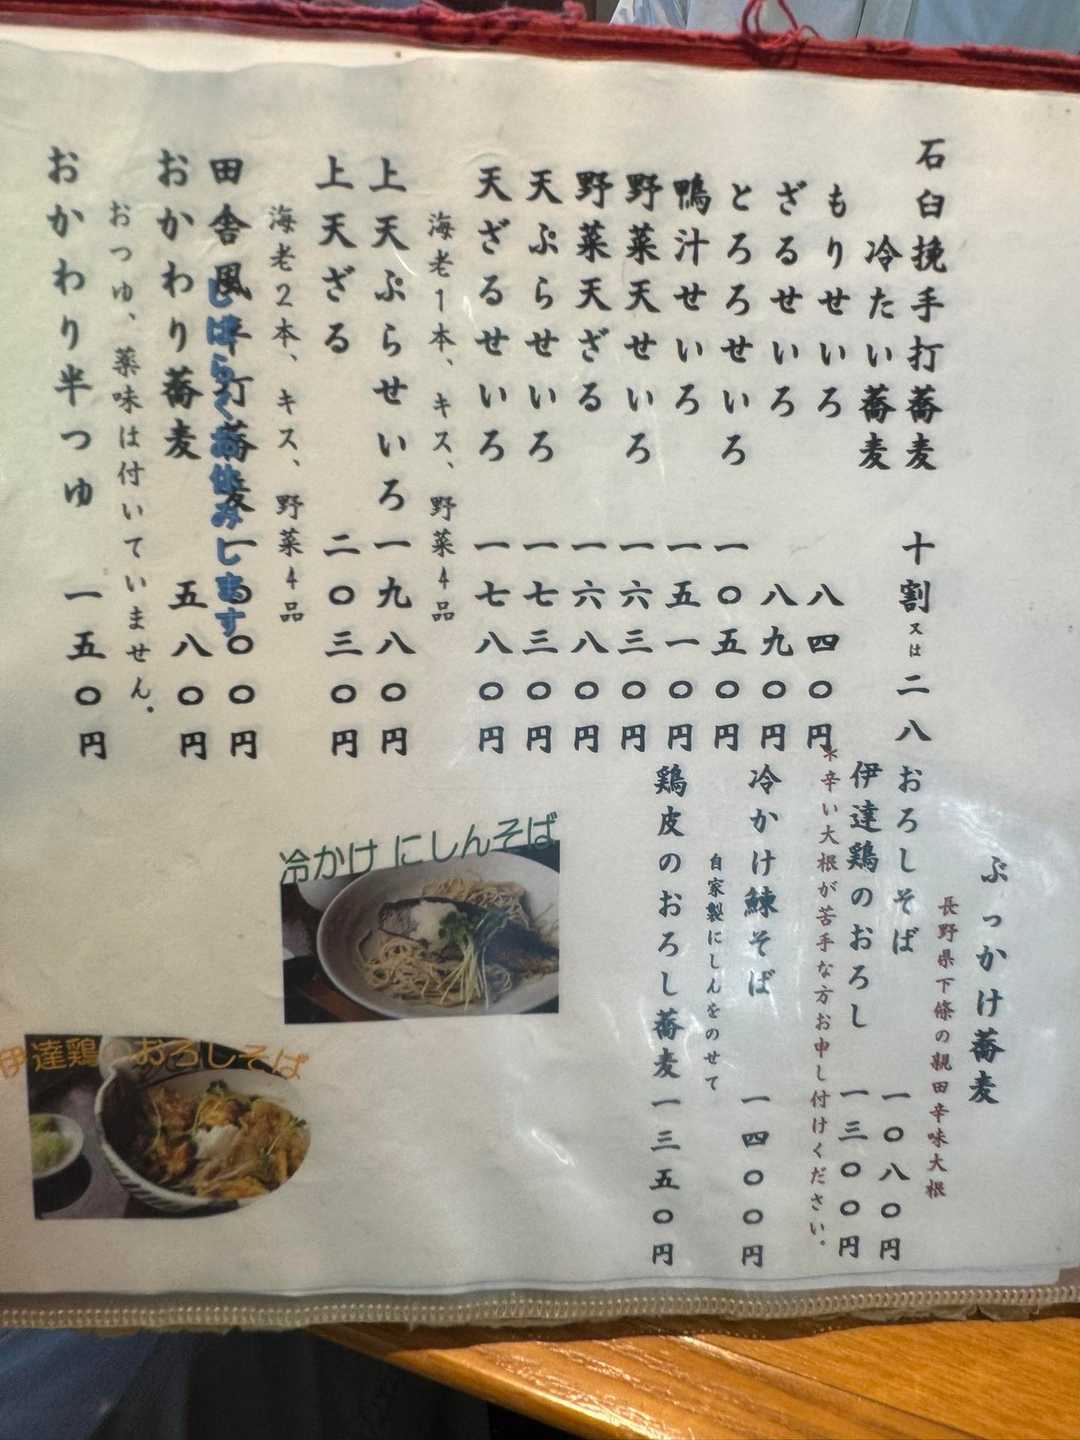 石臼挽手打蕎麦 十割又は二八
冷たい蕎麦
もりせいろ 八四〇円
ざるせいろ 八九〇円
とろろせいろ 一〇五〇円
鴨汁せいろ 一五一〇円
野菜天せいろ 一六三〇円
野菜天ざる 一六八〇円
天ぷらせいろ 一七三〇円
天ざるせいろ 一七八〇円
海老1本、キス、野菜4品
上天ぷらせいろ 一九八〇円
上天ざる 二〇三〇円
海老2本、キス、野菜4品
田舎風平打蕎麦 一〇〇〇円
しばらくお休みします
おかわり蕎麦 五八〇円
おつゆ、薬味は付いていません。
おかわり半つゆ 一五〇円
ぶっかけ蕎麦
長野県下條の親田辛味大根
おろしそば 一〇八〇円
伊達鶏のおろし 一三〇〇円
*辛い大根が苦手な方お申し付けください。
冷かけ鰊そば 一四〇〇円
自家製にしんをのせて
鶏皮のおろし蕎麦 一三五〇円
冷かけ にしんそば
伊達鶏のおろしそば